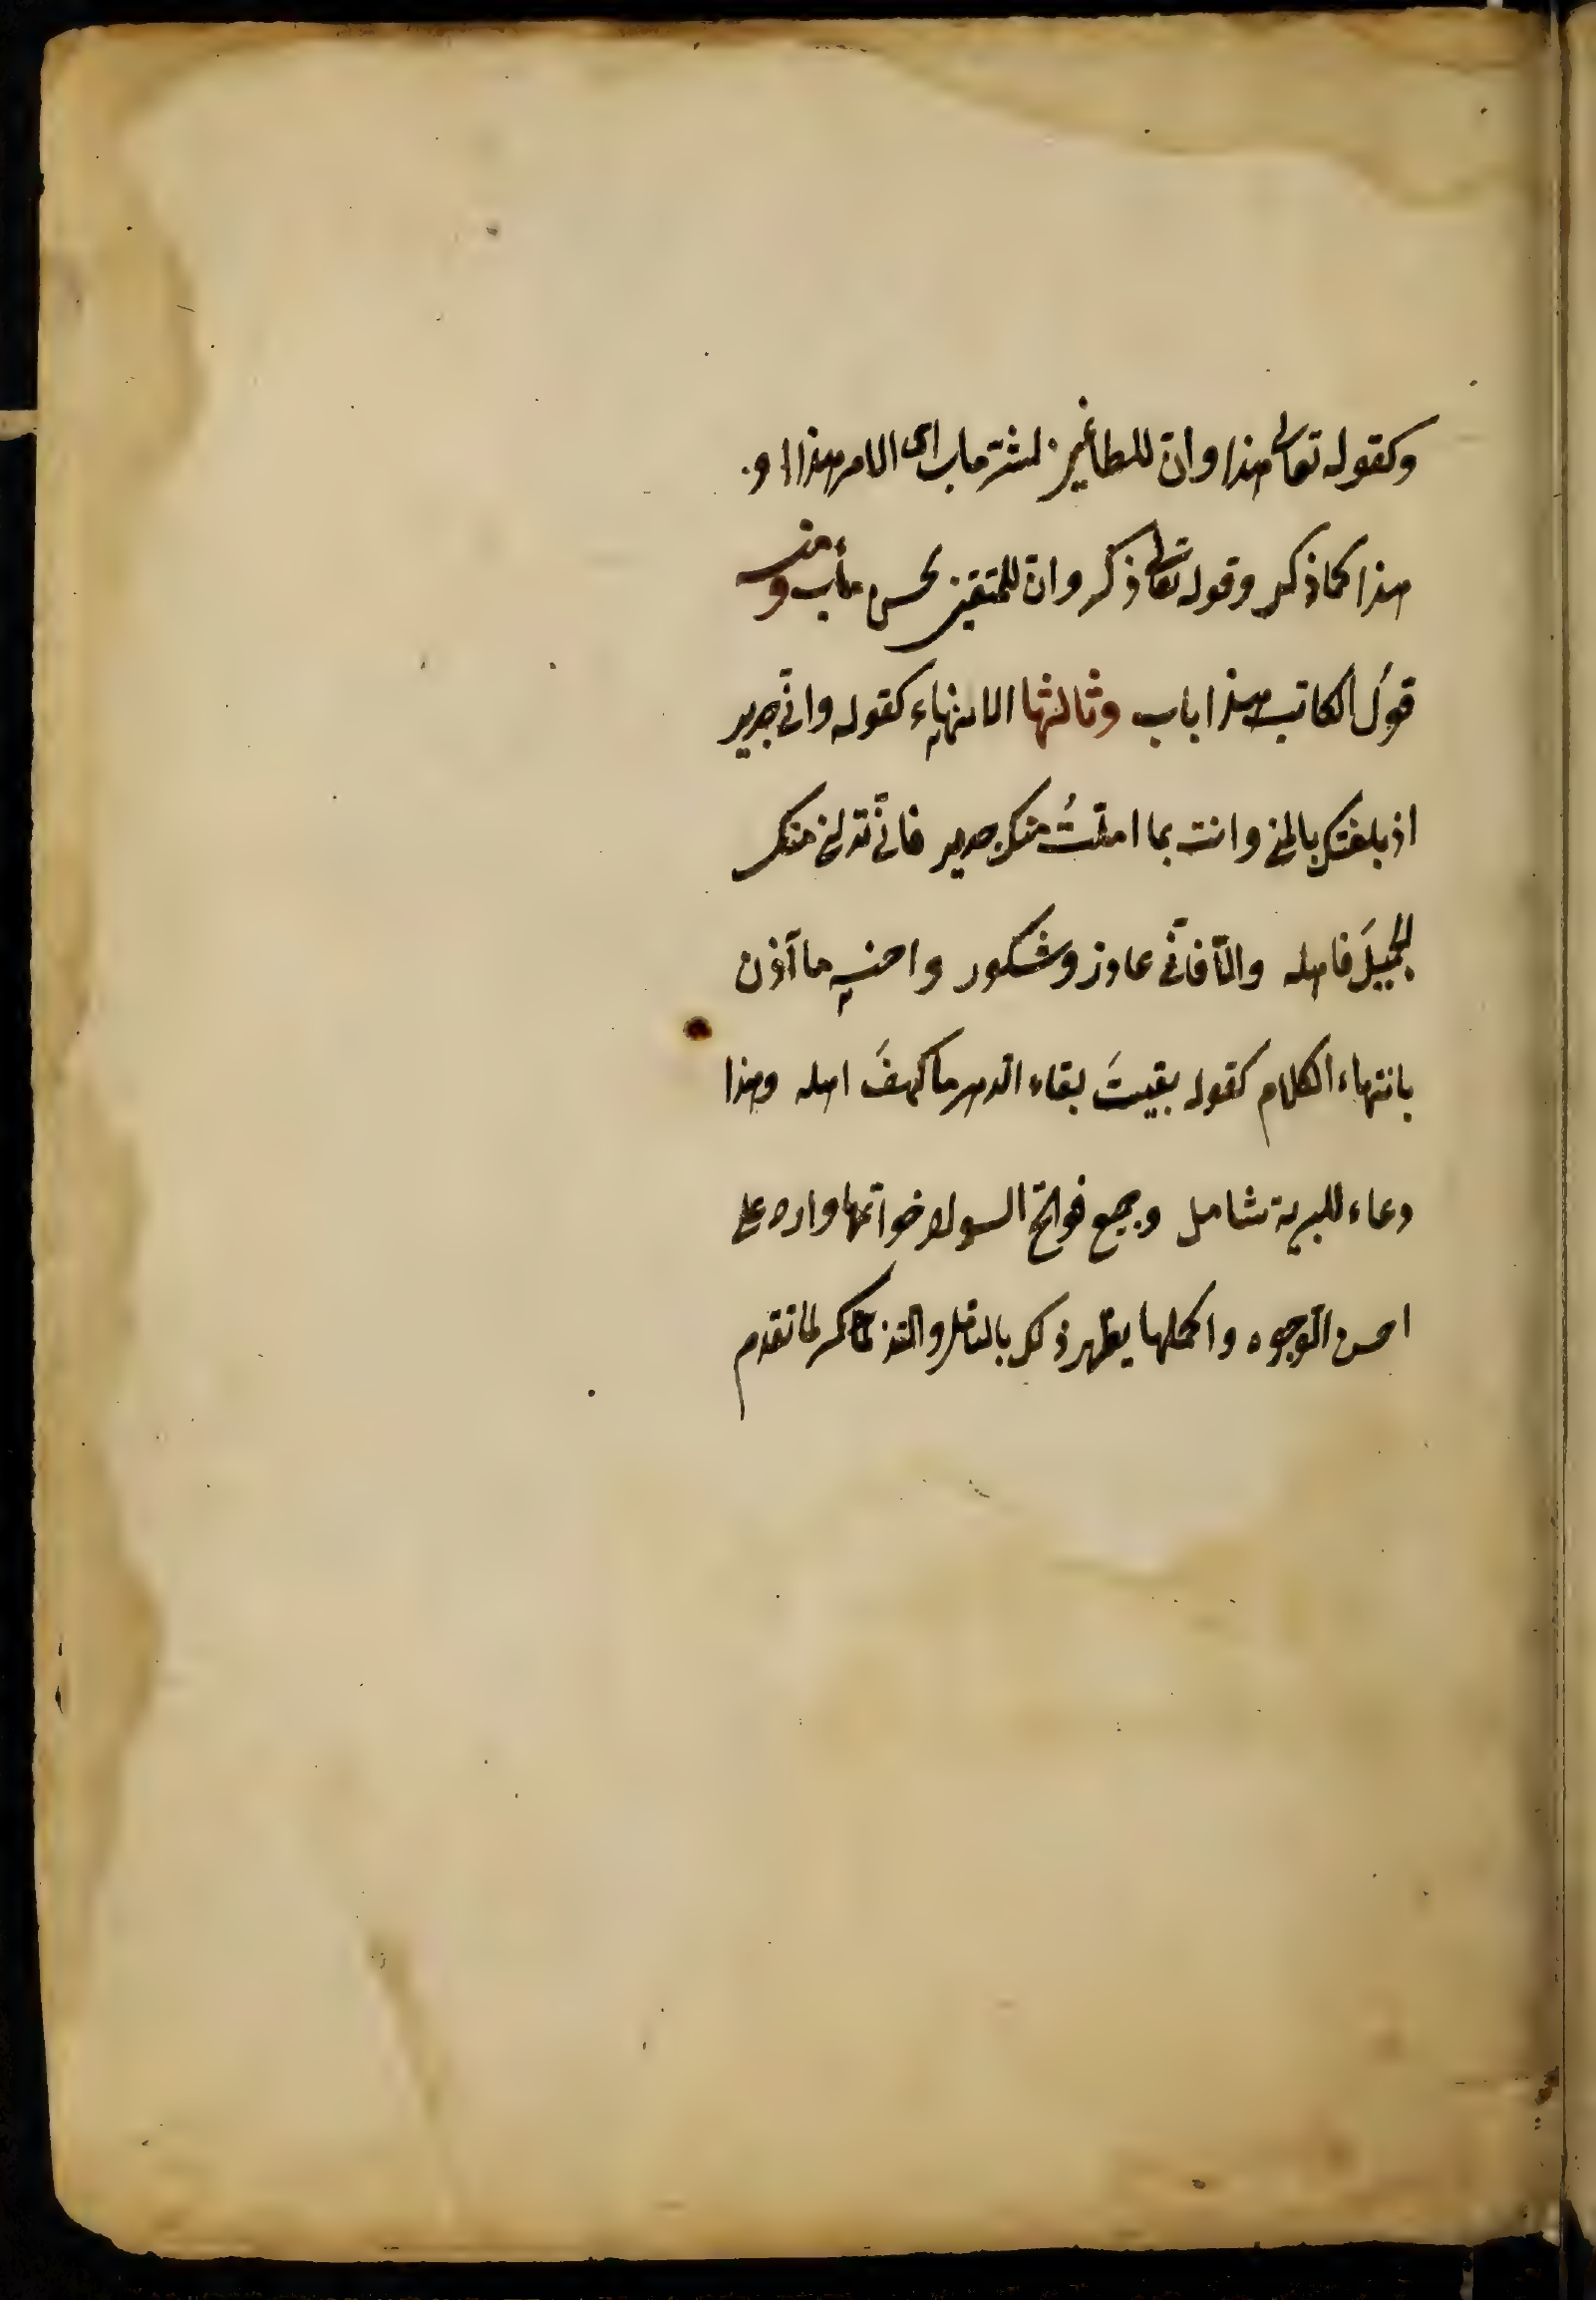 وكقوله تعالى هذا وان للطاغين لشر مآب اى الامر هذا او
هذا كما ذكر وقوله تعالى هذا ذكر وان للمتقين لحسن مآب ومنه
قول الكاتب هذا باب وثالثها الانتهاء كقوله وانّى جدير
اذ بلغتك بالمنى وانت بما امّلتُ منك جدير فان تولنى منك
الجميلَ فاهله والّا فانّى عاذر وشكور واحسنه ما آذن
بانتهاء الكلام كقوله بقيتَ بقاء الدهر يا كهفَ اهله وهذا
دعاء للبرية شامل وجميع فواتح السور وخواتمها وارد على
احسن الوجوه واكملها يظهر ذلك بالتامل والتذكر لما تقدم